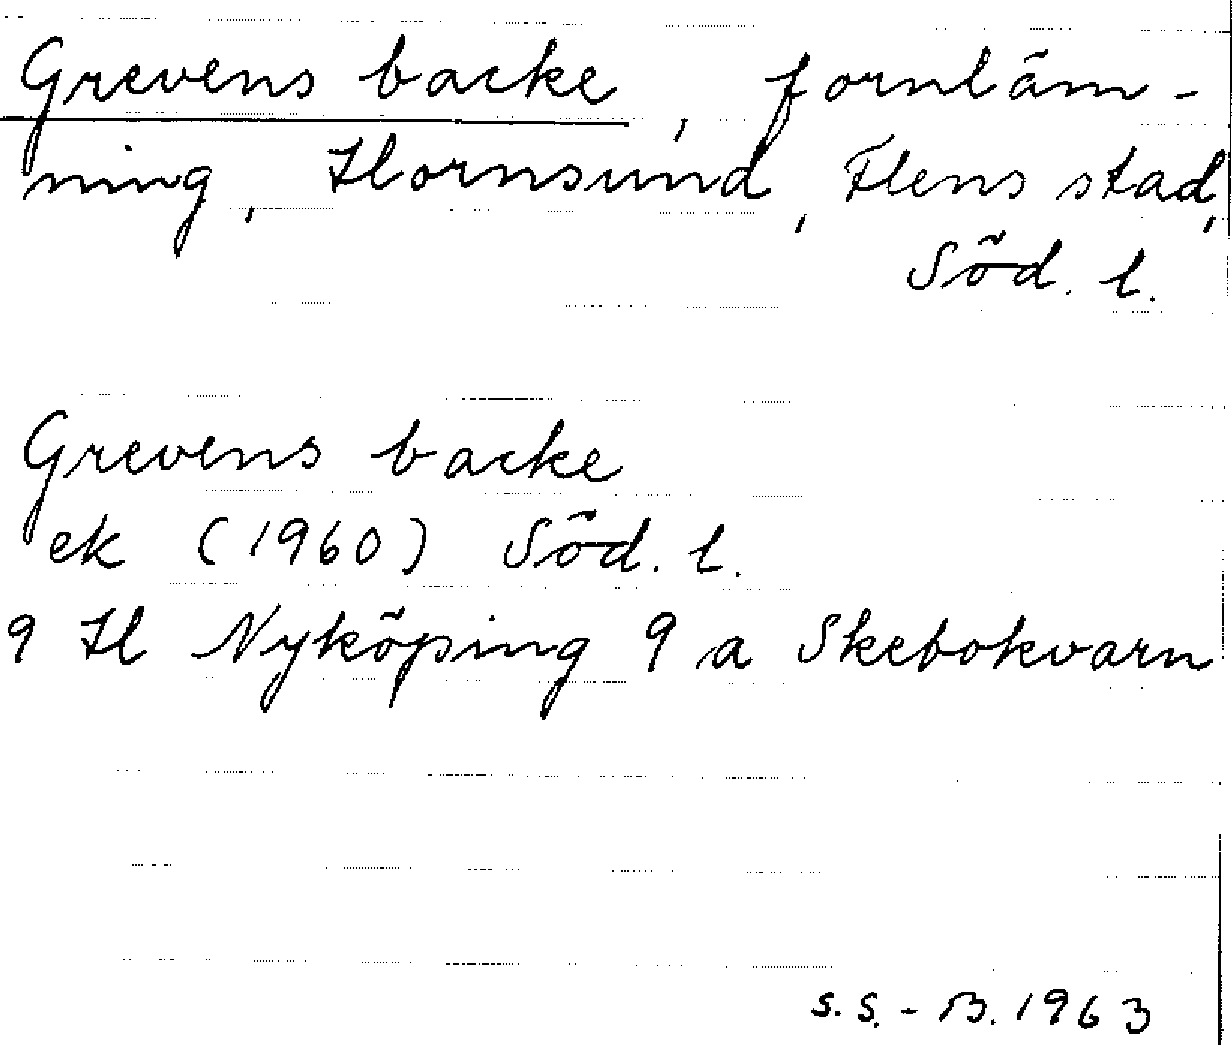 Grevens backe, fornläm-
ning, Hornsund, Flens stad,
Söd. l.
Grevens backe
ek (1960) Söd. l.
9 H Nyköping 9 a Skebokvarn
S.S.-B. 1963